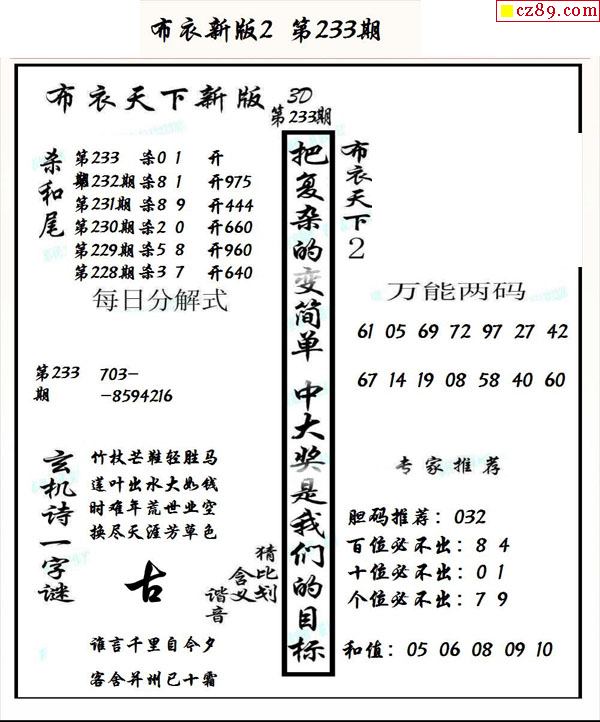 cz89.com
布衣新版2 第233期
布衣天下新版 3D
第233期
杀和尾
第233 杀0 1 开
期232期杀8 1 开975
第231期杀8 9 开444
第230期杀2 0 开660
第229期杀5 8 开960
第228期杀3 7 开640
每日分解式
第233期
703-
-8594216
玄机诗一字谜
竹杖芒鞋轻胜马
莲叶出水大如钱
时难年荒世业空
换尽天涯芳草色
古
猜比划
含义
谐音
谁言千里自今夕
客舍并州已十霜
把复杂的变简单 中大奖是我们的目标
布衣天下2
万能两码
61 05 69 72 97 27 42
67 14 19 08 58 40 60
专家推荐
胆码推荐：032
百位必不出：8 4
十位必不出：0 1
个位必不出：7 9
和值：05 06 08 09 10